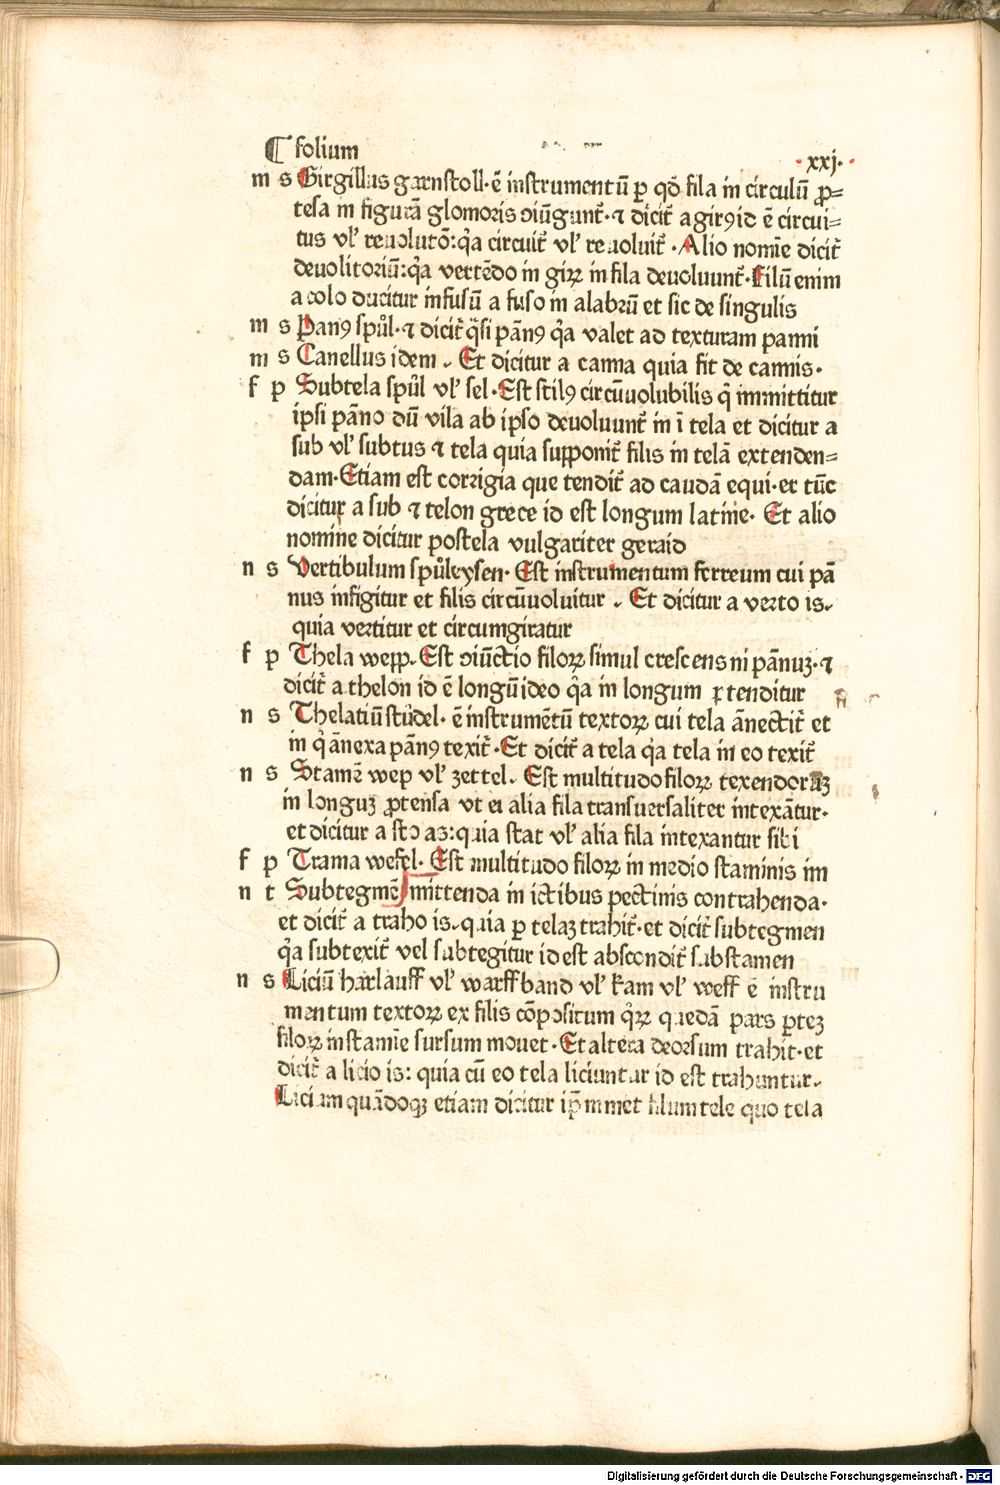 ¶ folium
·xxj·
m s Girgillus garnstoll·ē instrumentū ꝑ qđ fila in circulū ꝓ=
tesa in figurā glomoris ↄiūgunt᷑·⁊ dicit᷑ a girꝯ id ē circui=
tus vl᷑ reuolutō:q̇a circuit᷑ vl᷑ reuoluit᷑·Alio nomīe dicit᷑
deuolitoriū:q̇a vertēdo in girꝝ in fila deuoluunt᷑·Filū enim
a colo ducitur infusū a fuso in alabrū et sic de singulis
m s Panꝯ spůl·⁊ dicit᷑ q̄si pānꝯ q̇a valet ad texturam panni
m s Canellus idem . Et dicitur a canna quia fit de cannis·
f p Subtela spůl vl᷑ sel·Est stilꝯ circūuolubilis q̇ immittitur
ipsi pāno dū vila ab ipso deuoluunt᷑ in ī tela et dicitur a
sub vl᷑ subtus ⁊ tela quia supponit᷑ filis in telā extenden=
dam·Etiam est corrigia que tendit᷑ ad caudā equi·et tūc
dicitur a sub ⁊ telon grece id est longum latine· Et alio
nomine dicitur postela vulgariter geraid
n s Vertibulum spůleysen· Est instrumentum ferreum cui pā
nus infigitur et filis circūuoluitur . Et dicitur a verto is.
quia vertitur et circumgiratur
f p Thela wepp.Est ↄiūctio filoꝝ simul crescens ni pānuꝫ·⁊
dicit᷑ a thelon id ē longū ideo q̇a in longum ꝓtenditur
n s Thelatiū stůdel· ē instrumētū textoꝝ cui tela ānectit᷑ et
in q̇ ānexa pānꝯ texit᷑·Et dicit᷑ a tela q̇a tela in eo texit᷑
n s Stamē wep vl᷑ zettel. Est multitudo filoꝝ texendorūꝫ
in longuꝫ ꝓtensa vt ei alia fila transuersaliter intexātur·
et dicitur a sto as:quia stat vl᷑ alia fila intexantur sibi
f p Trama wefel· Est multitudo filoꝝ in medio staminis im
n t Subtegmē mittenda in ictibus pectinis contrahenda·
et dicit᷑ a traho is.quia ꝑ telaꝫ trahit᷑·et dicit᷑ subtegmen
q̇a subtexit᷑ vel subtegitur id est abscondit᷑ sub stamen
n s Liciū harlauff vl᷑ warffband vl᷑ kam vl᷑ weff ē instru
mentum textoꝝ ex filis cōpositum q̇ꝝ quedā pars ꝑteꝫ
filoꝝ in stamīe sursum mouet·Et altera deorsum trahit·et
dicit᷑ a licio is: quia cū eo tela liciuntur id est trahuntur.
Licium quādoqꝫ etiam dicitur ip̄mmet filum tele quo tela
Digitalisierung gefördert durch die Deutsche Forschungsgemeinschaft - DFG